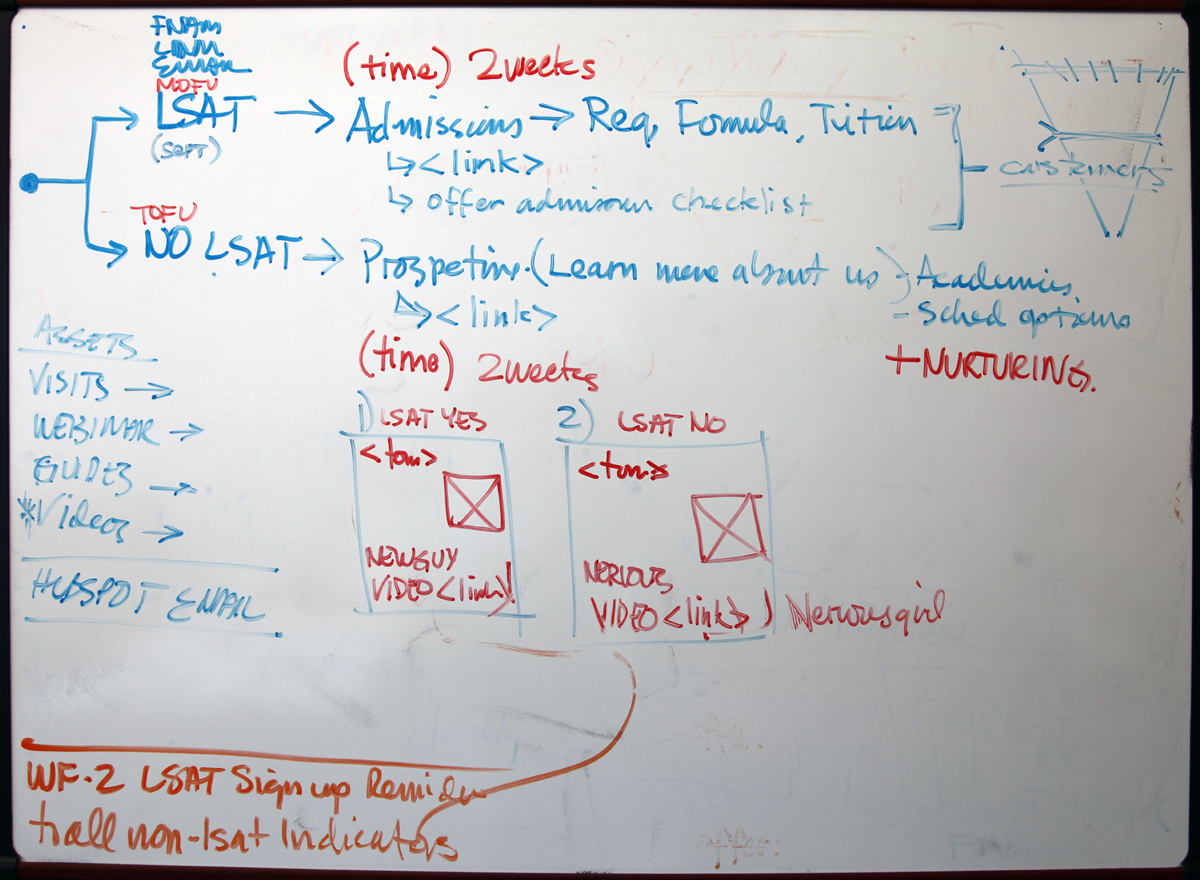 FNAM
LNM
EMAIL
MOFU
(time) 2 weeks
LSAT → Admissions → Req, Formula, Tuition
(SEPT)
↳ <link>
↳ offer admission checklist
customers
TOFU
NO LSAT → Prospetive (Learn more about us) - Academics
- Sched options
↳ <link>
+ NURTURING.
(time) 2 weeks
ASSETS
VISITS →
WEBINAR →
GUIDES →
*Videos →
HUBSPOT EMAIL
1) LSAT YES
<tom>
NEW GUY
VIDEO <link>!
2) LSAT NO
NERVOUS
VIDEO <link>) Nervous girl
WF-2 LSAT Sign up Reminder
to all non-lsat Indicators